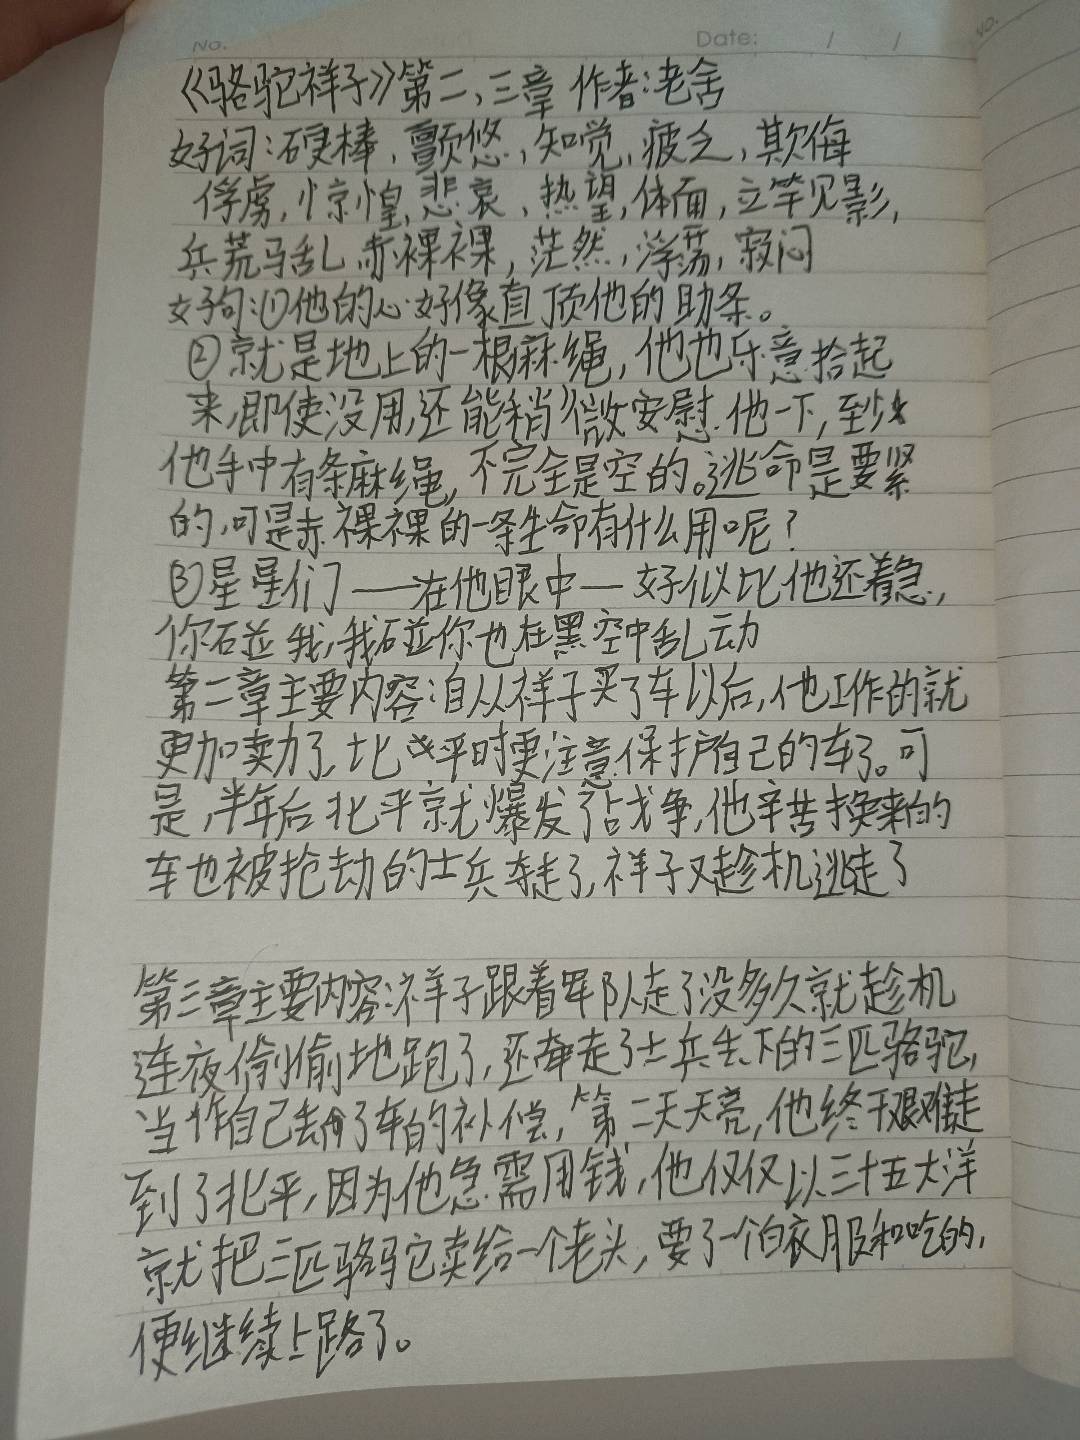 No.
Date: / /
No.
《骆驼祥子》第二,三章 作者:老舍
好词:硬棒,颤悠,知觉,疲乏,欺侮
俘虏,惊惶,悲哀,热望,体面,立竿见影,
兵荒马乱 赤裸裸,茫然,浮荡,寂闷
好句:①他的心好像直顶他的肋条。
②就是地上的一根麻绳,他也乐意拾起
来,即使没用,还能稍微安慰他一下,至少
他手中有条麻绳,不完全是空的。逃命是要紧
的,可是赤裸裸的一条生命有什么用呢?
③星星们——在他眼中—好似比他还着急,
你碰我,我碰你也在黑空中乱动
第二章主要内容:自从祥子买了车以后,他工作的就
更加卖力了,比平时更注意保护自己的车了。可
是,半年后北平就爆发了战争,他辛苦换来的
车也被抢劫的士兵夺走了,祥子又趁机逃走了
第三章主要内容:祥子跟着军队走了没多久就趁机
连夜偷偷地跑了,还牵走了士兵丢下的三匹骆驼,
当作自己丢了车的补偿,第二天天亮,他终于艰难走
到了北平,因为他急需用钱,他仅仅以三十五大洋
就把三匹骆驼卖给一个老头,要了一个白衣服和吃的,
便继续上路了。